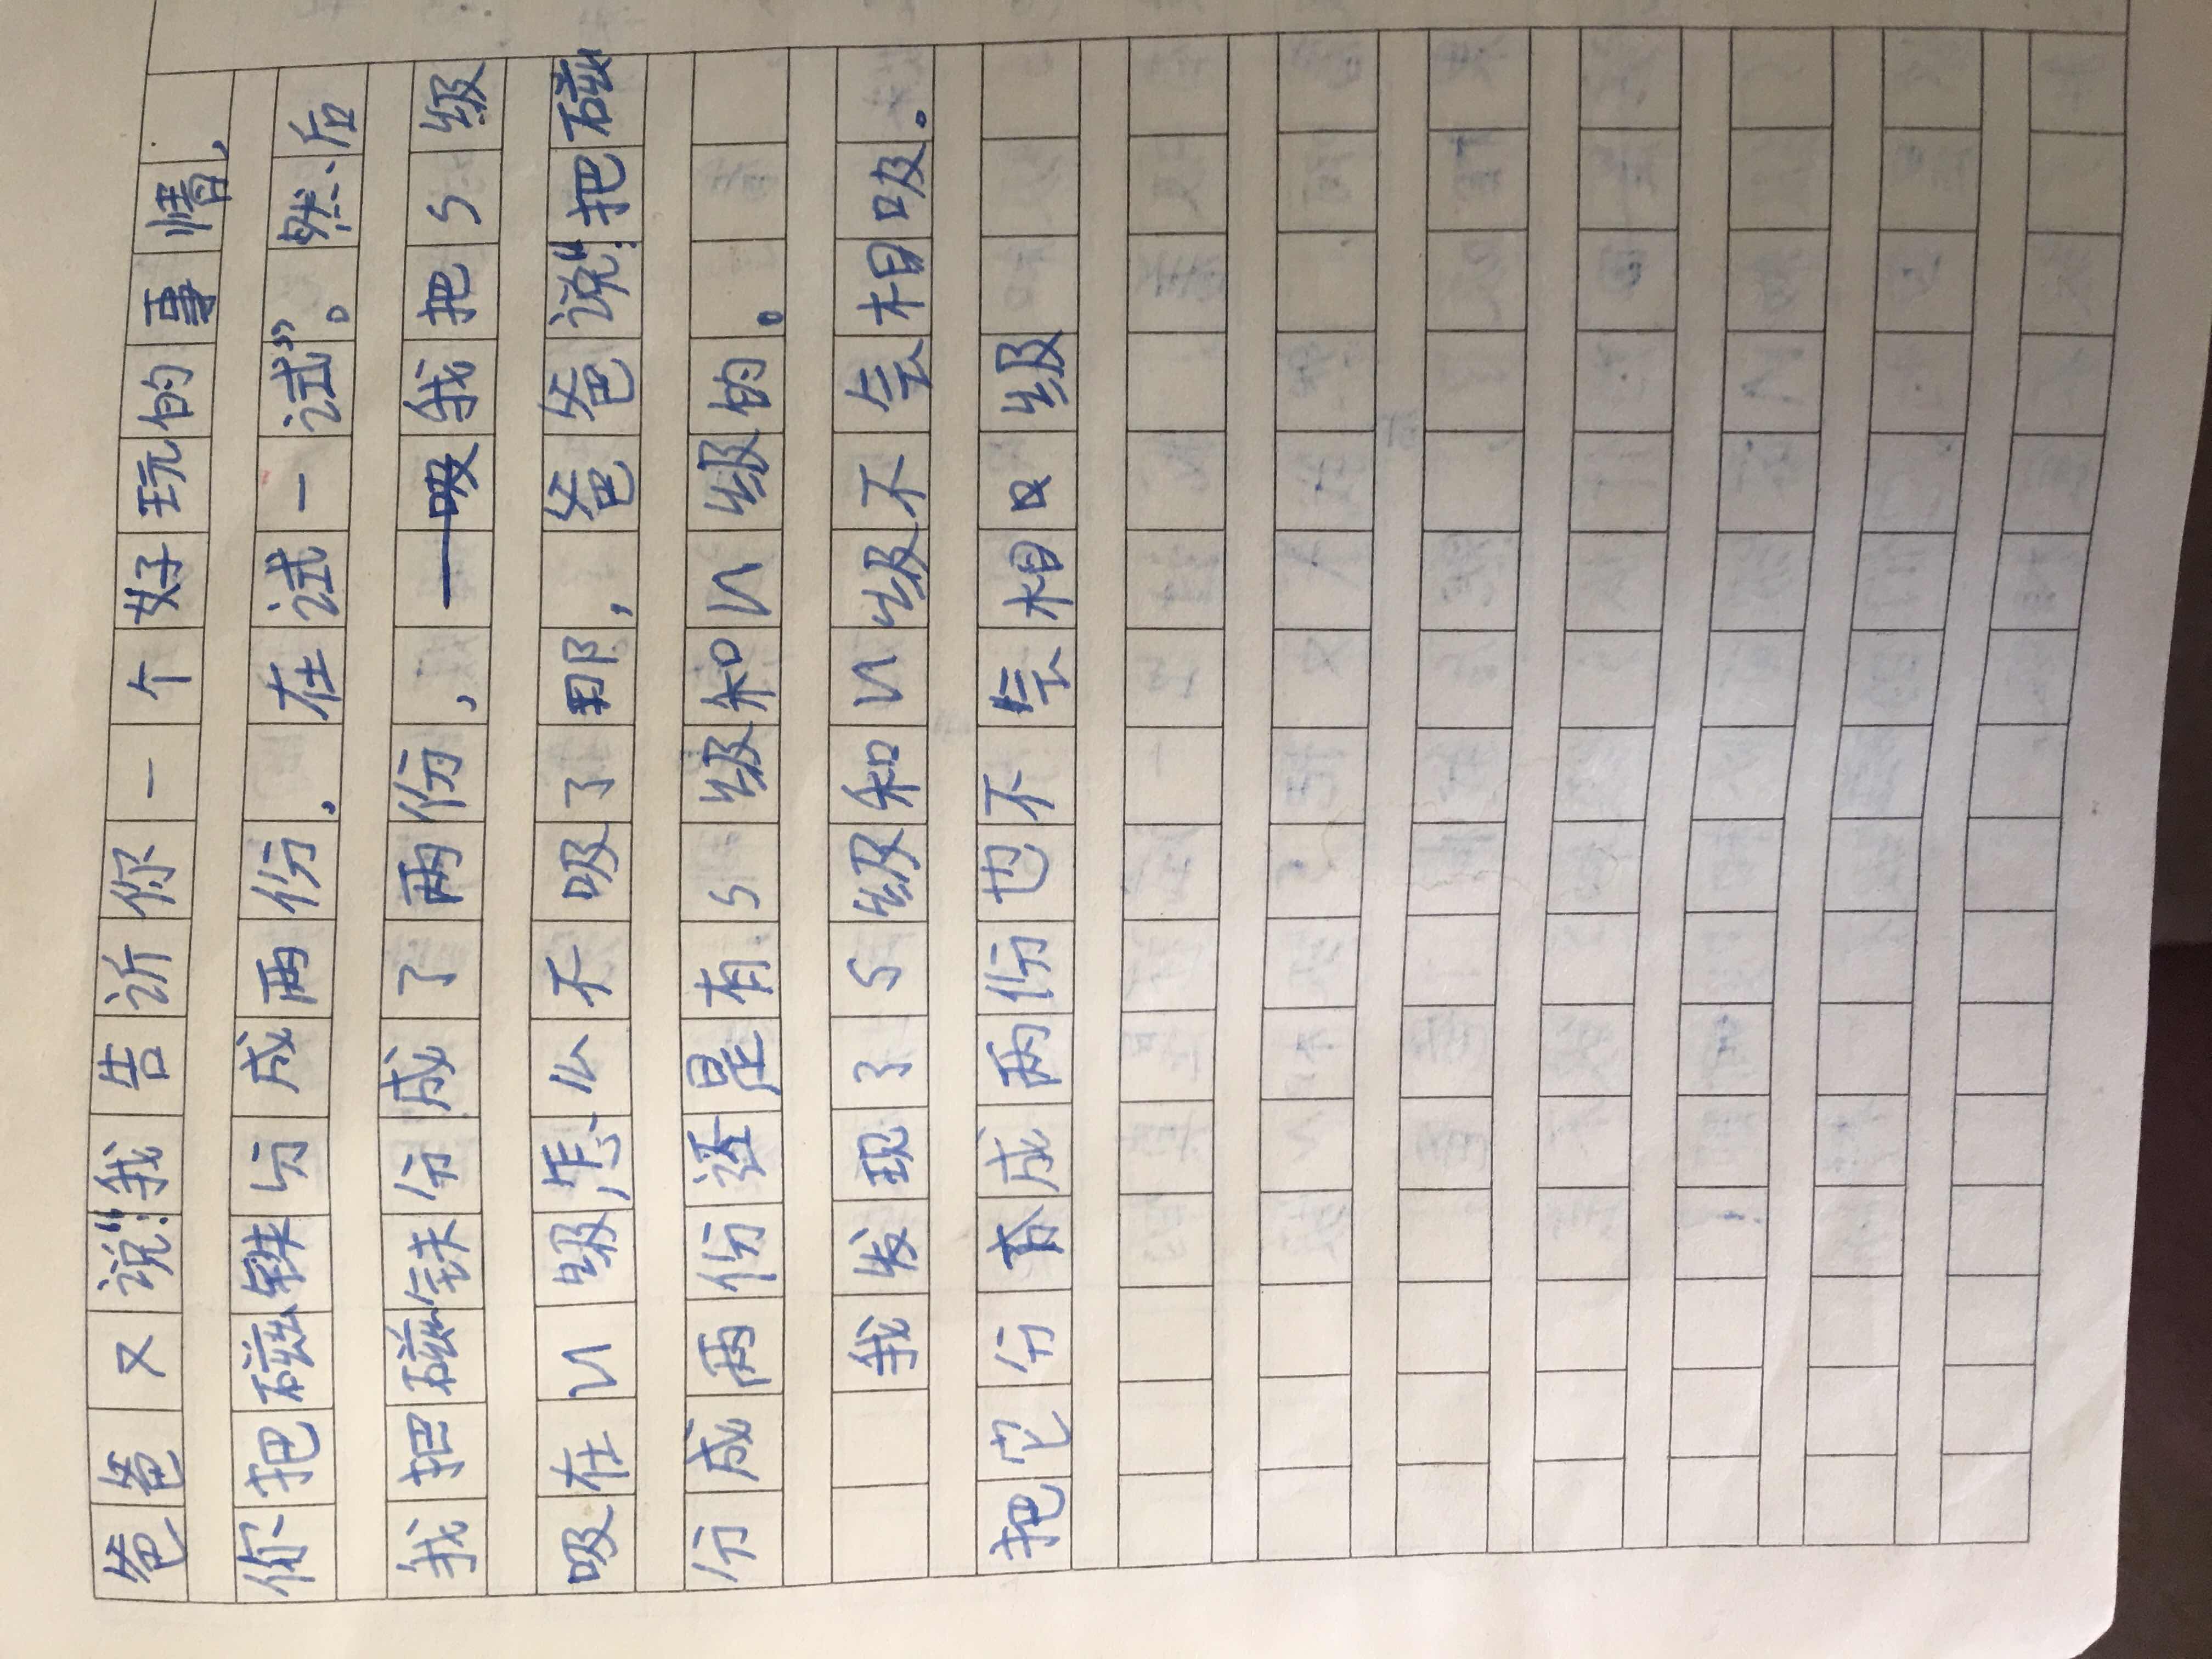 爸爸又说:“我告诉你一个好玩的事情,
你把磁铁分成两份.在试一试”。然后
我把磁铁分成了两份,一吸我把S级
吸在N级怎么不吸了那,爸爸说:“把磁
分成两份还是有S级和N级的。
我发现了S级和N级不会相吸。
把它分成两份也不会相级